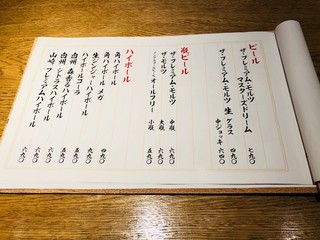 ビール
ザ・プレミアム・モルツ
マスターズドリーム 七九〇
ザ・プレミアム・モルツ 生 グラス 四九〇
中ジョッキ 六四〇
瓶ビール
ザ・プレミアム・モルツ 中瓶 六九〇
ザ・モルツ 大瓶
オールフリー 小瓶
ハイボール
角ハイボール 四九〇
角ハイボール メガ 九九〇
生ジンジャーハイボール
ハイボールコーラ 五九〇
白州 森香るハイボール
白州 シトラスハイボール
山崎 プレミアムハイボール 六九〇